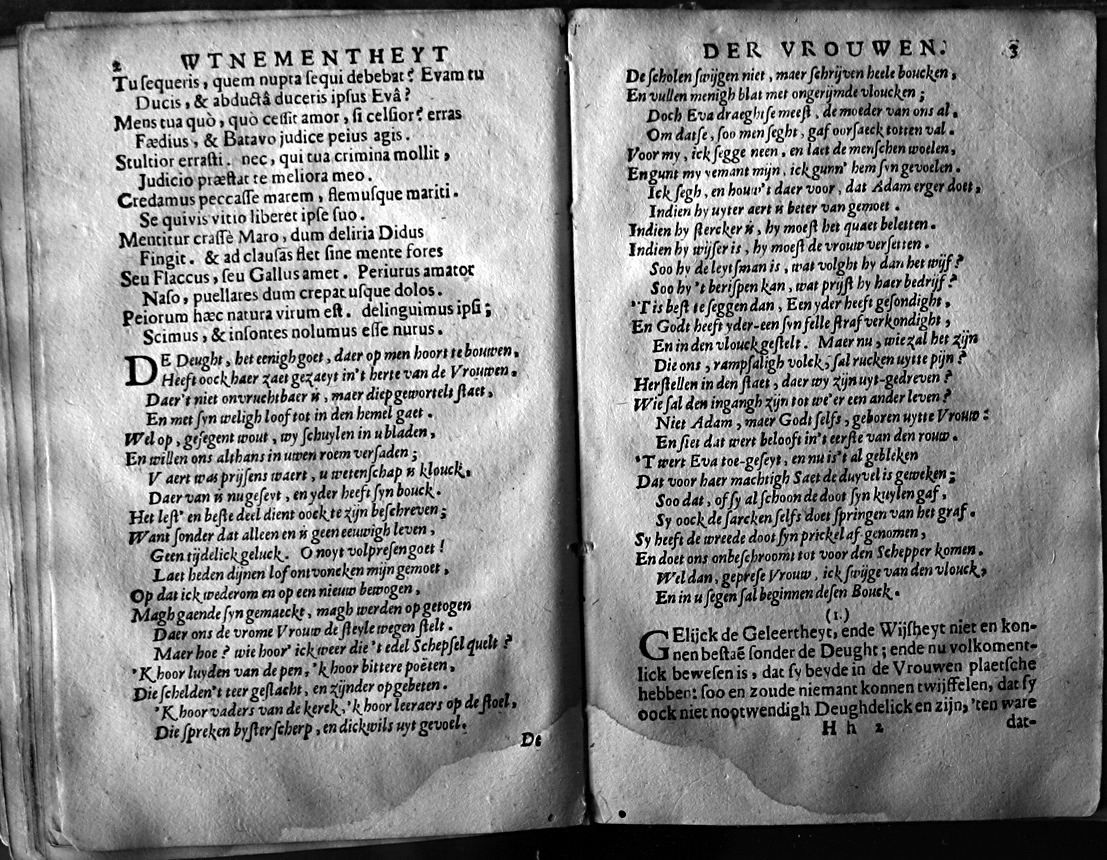 2 WTNEMENTHEYT
Tu sequeris, quem nupta sequi debebat? Evam tu
Ducis, & abductâ duceris ipsus Evâ?
Mens tua quò, quò cessit amor, si celsior? erras
Fædius, & Batavo judice peius agis.
Stultior errasti. nec, qui tua crimina mollit,
Judicio præstat te meliora meo.
Credamus peccasse marem, flemusque mariti.
Se quivis vitio liberet ipse suo.
Mentitur crassè Maro, dum deliria Didus
Fingit. & ad clausas flet sine mente fores
Seu Flaccus, seu Gallus amet. Periurus amator
Naso, puellares dum crepat usque dolos.
Peiorum hæc natura virum est. delinguimus ipsi;
Scimus, & insontes nolumus esse nurus.
DE Deught, het eenigh goet, daer op men hoort te bouwen,
Heeft oock haer zaet gezaeyt in't herte van de Vrouwen.
Daer't niet onvruchtbaer is, maer diep gewortelt staet,
En met syn weligh loof tot in den hemel gaet.
Wel op, gesegent wout, wy schuylen in u bladen,
En willen ons althans in uwen roem versaden;
V aert was prijsens waert, u wetenschap is klouck.
Daer van is nu geseyt, en yder heeft syn bouck.
Het lest' en beste deel dient oock te zijn beschreven;
Want sonder dat alleen en is geen eeuwigh leven,
Geen tijdelick geluck. O noyt volpresen goet!
Laet heden dijnen lof ontvoncken mijn gemoet,
Op dat ick wederom en op een nieuw bewogen,
Magh gaende syn gemaeckt, magh werden op getogen
Daer ons de vrome Vrouw de steyle wegen stelt.
Maer hoe? wie hoor' ick weer die 't edel Schepsel quelt?
'K hoor luyden van de pen, 'k hoor bittere poëten,
Die schelden't teer geslacht, en zijnder op gebeten.
'K hoor vaders van de kerck, 'k hoor leeraers op de stoel,
Die spreken byster scherp, en dickwils uyt gevoel.
De
DER VROUWEN. 3
De scholen swijgen niet, maer schrijven heele boucken,
En vullen menigh blat met ongerijmde vloucken;
Doch Eva draeghtse meest, de moeder van ons al,
Om datse, soo men seght, gaf oorsaeck totten val.
Voor my, ick segge neen, en laet de menschen woelen,
En gunt my yemant mijn, ick gunn' hem syn gevoelen.
Ick segh, en houw't daer voor, dat Adam erger doet,
Indien hy uyter aert is beter van gemoet.
Indien hy stercker is, hy moest het quaet beletten.
Indien hy wijser is, hy moest de vrouw versetten.
Soo hy de leytsman is, wat volght hy dan het wijf?
Soo hy 't berispen kan, wat prijst hy haer bedrijf?
'T is best te seggen dan, Een yder heeft gesondight,
En Godt heeft yder-een syn felle straf verkondight,
En in den vlouck gestelt. Maer nu, wie zal het zijn
Die ons, rampsaligh volck, sal rucken uytte pijn?
Herstellen in den staet, daer wy zijn uyt-gedreven?
Wie sal den ingangh zijn tot we'er een ander leven?
Niet Adam, maer Godt selfs, geboren uytte Vrouw:
En siet dat wert belooft in't eerste van den rouw.
'T wert Eva toe-geseyt, en nu is't al gebleken
Dat voor haer machtigh Saet de duyvel is geweken;
Soo dat, of sy al schoon de doot syn kuylen gaf,
Sy oock de sarcken selfs doet springen van het graf.
Sy heeft de wreede doot syn prickel af-genomen,
En doet ons onbeschroomt tot voor den Schepper komen.
Wel dan, geprese Vrouw, ick swijge van den vlouck,
En in u segen sal beginnen desen Bouck.
(1.)
GElijck de Geleertheyt, ende Wijsheyt niet en kon-
nen bestaē sonder de Deught; ende nu volkoment-
lick bewesen is, dat sy beyde in de Vrouwen plaetsche
hebben: soo en zoude niemant konnen twijffelen, dat sy
oock niet nootwendigh Deughdelick en zijn, 'ten ware
H h 2 dat-